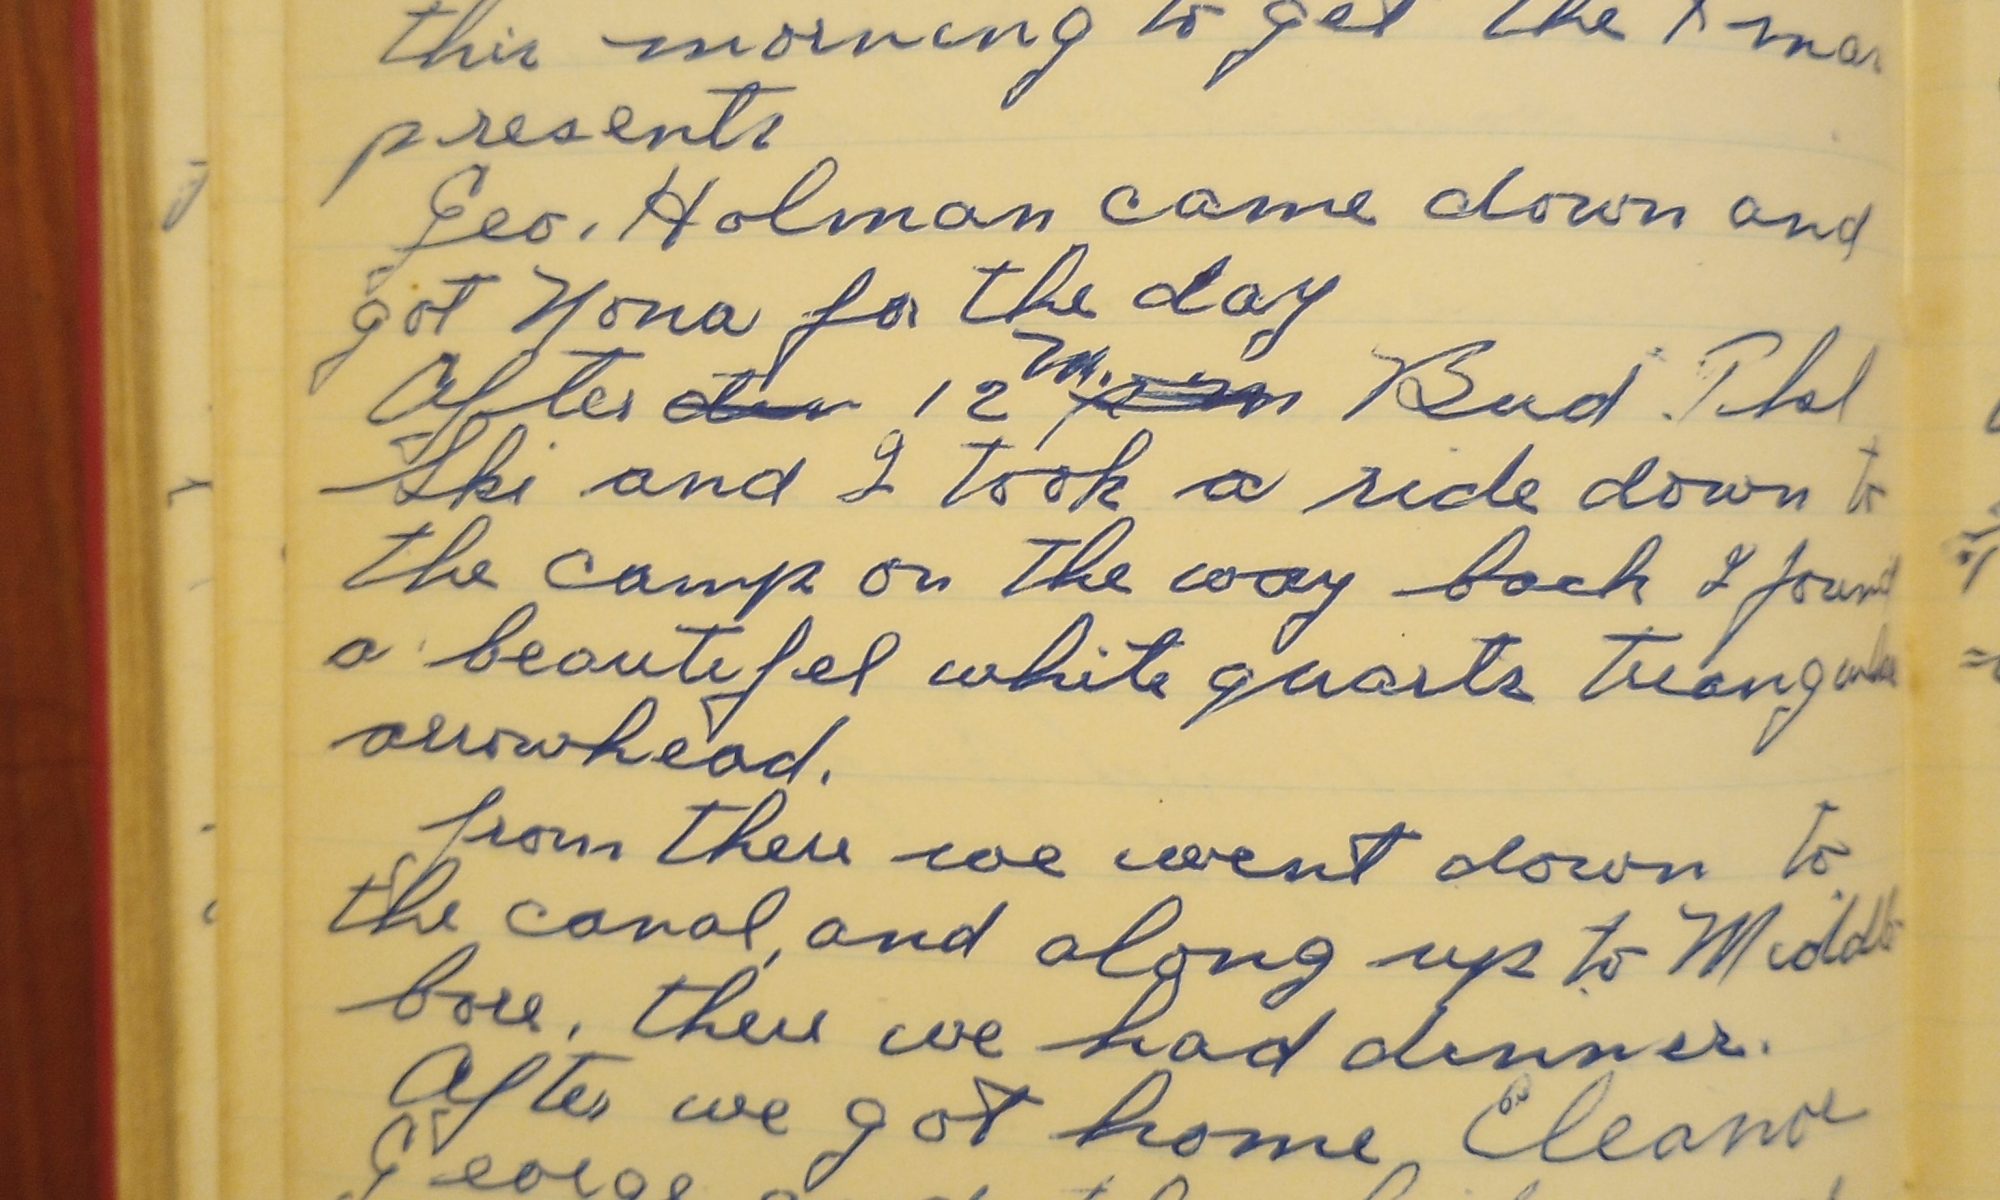 this morning to get the Xmas
presents
Geo. Holman came down and
got Nona for the day
After 12 M. Bud Phil
Ski and I took a ride down to
the camp on the way back I found
a beautifel white quarts triangular
arrowhead.
from there we went down to
the canal, and along up to Middle
boro, there we had dinner.
After we got home, Eleanor
George